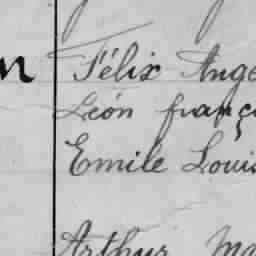 n Félix Ange
Léon franç
Emile Louis
Arthur Ma